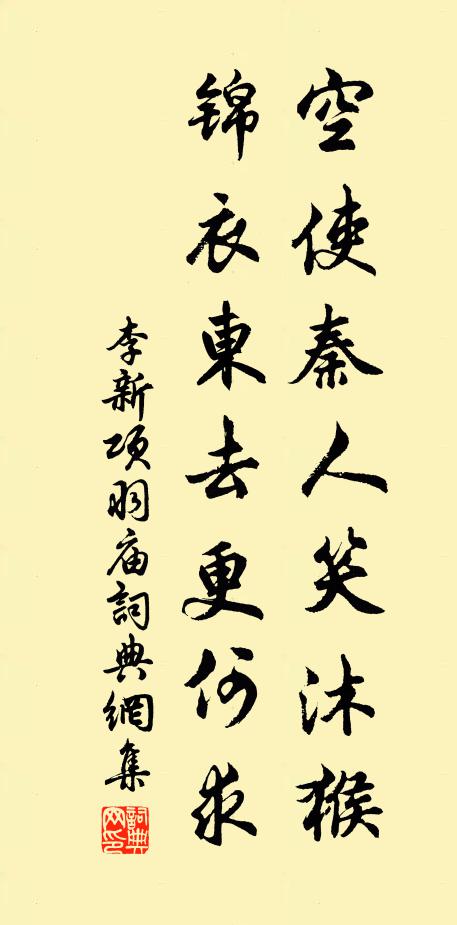 空使秦人笑沐猴
锦衣東去更何求
李新项羽庙詞典網集
詞典
网印